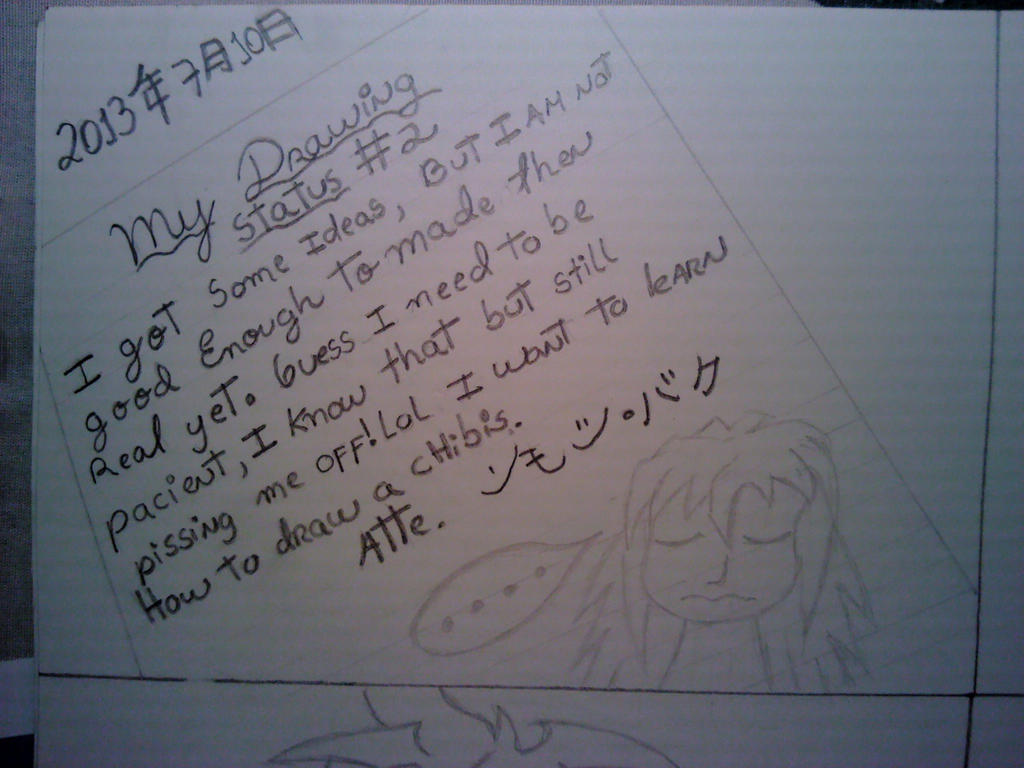 2013年7月10日
My Drawing
Status #2
I got some Ideas, But I AM NOT
good Enough to made then
Real yet. Guess I need to be
pacient, I know that but still
pissing me OFF! Lol I want to leARN
How to draw a cHibis.
Atte. ソモツ・バク
....